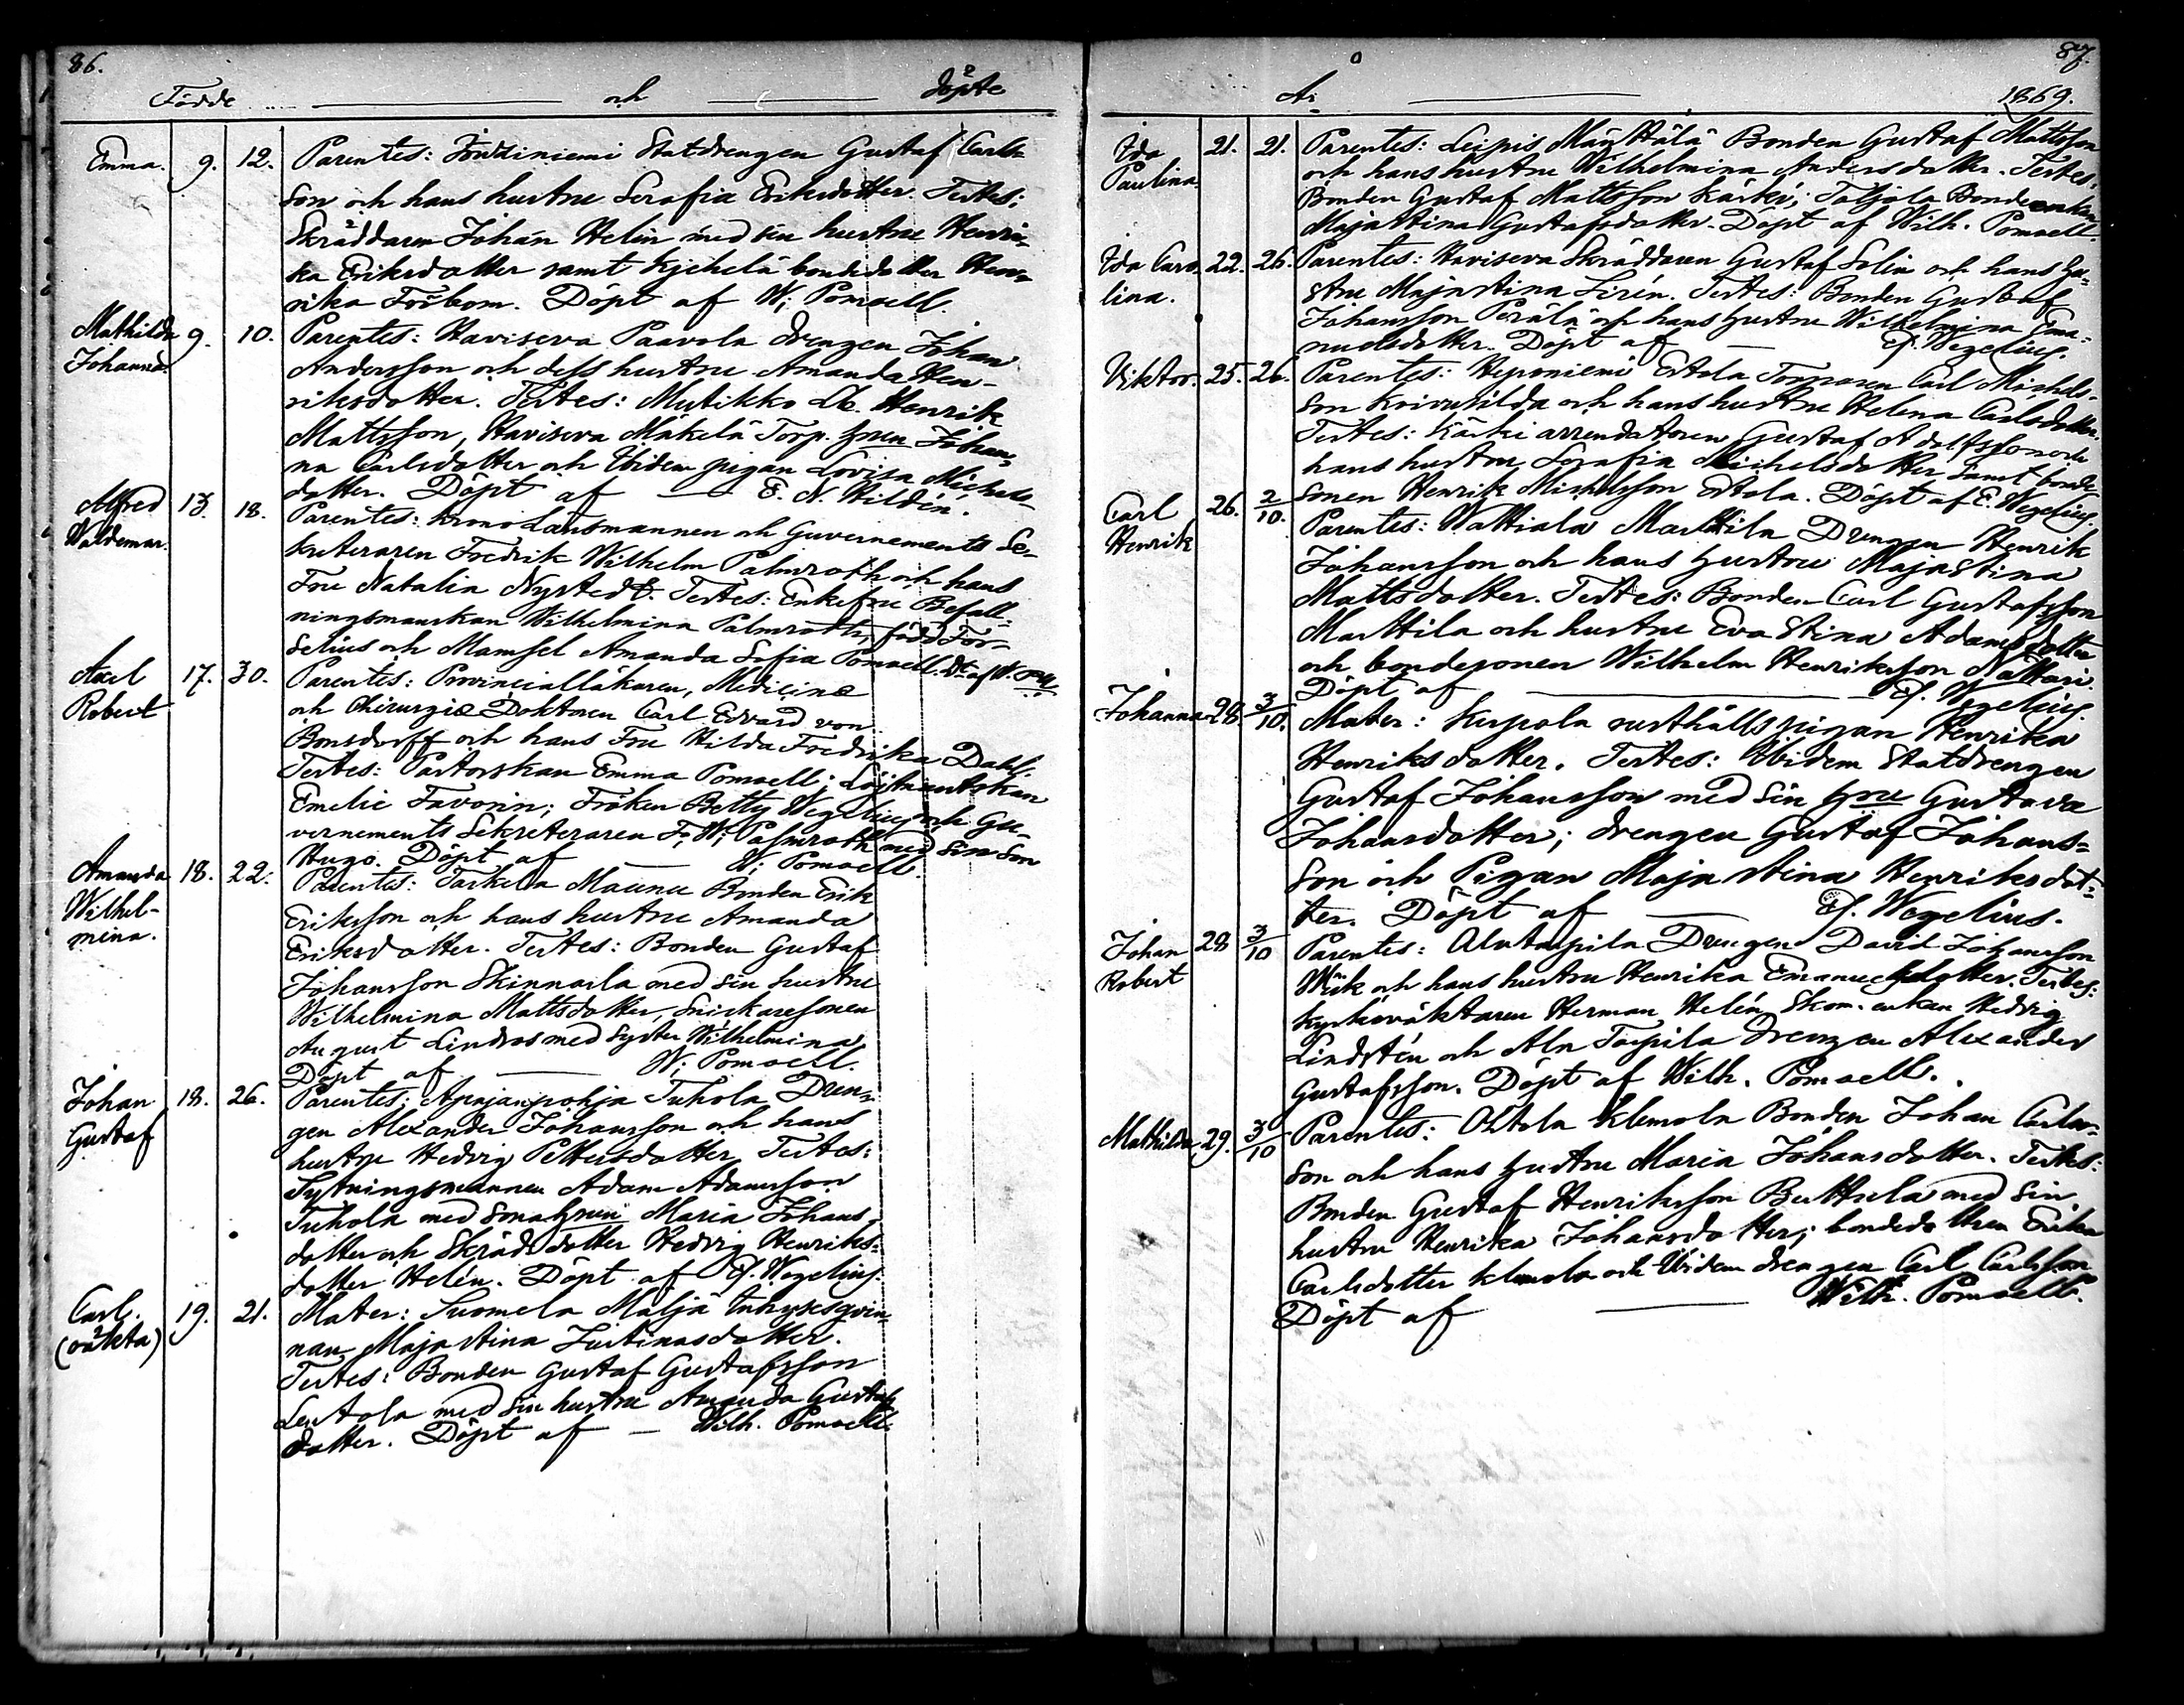 86.
Födde och döpte
Emma. 9. 12. Parentes: Statdrengen Gustaf Carls-
son och hans hustru Serafia Eriksdotter. Testes:
Skräddaren Johan Helin med sin hustru Henri-
ka Eriksdotter samt bondedotter Hen-
rika Forsbom. Döpt af W. Pomoell.
Mathilda 9. 10. Parentes: Haviseva Paavola drengen Johan
Johanna Andersson och dess hustru Amanda Hen-
riksdotter. Testes: Mutikko Henrik
Mattsson, Haviseva Mäkelä Torp. hru Johan-
na Carlsdotter och Ibidem pigan Lovisa Michels-
dotter. Döpt af — E. N. Hildén.
Alfred 13. 18. Parentes: Krono Länsmannen och Guvernements Se-
Waldemar. kreteraren Fredrik Wilhelm Palmroth och hans
Fru Natalia Nystedt. Testes: Enkefru Befall-
ningsmanskan Wilhelmina Palmroth, född For-
selius och Mamsel Amanda Sofia Pomoell. Dt af W. P.
Axel 17. 30. Parentes: Provincialläkaren, Medicinæ
Robert och Chirurgiæ Doktoren Carl Edvard von
Bonsdorff och hans Fru Hilda Fredrika Dahl.
Testes: Pastorskan Emma Pomoell; Löjtnantskan
Emelie Favorin; Fröken Betty Wegelius och Gu-
vernements Sekreteraren F. W. Palmroth med sin son
Hugo. Döpt af — W. Pomoell.
Amanda 18. 22. Parentes: Maunu Bonden Erik
Wilhel- Eriksson och hans hustru Amanda
mina. Eriksdotter. Testes: Bonden Gustaf
Johansson Skinnarla med sin hustru
Wilhelmina Mattsdotter, Snickaresonen
August Lindros med syster Wilhelmina
Döpt af — W. Pomoell.
Johan 18. 26. Parentes: Apajanpohja Tuhola Dren-
Gustaf gen Alexander Johansson och hans
hustru Hedvig Pettersdotter. Testes:
Sytningsmannen Adam Adamsson
Tuhola med sonahrun Maria Johans-
dotter och Skrädd.dotter Hedvig Henriks-
dotter Helén. Döpt af E. Wegelius.
Carl. 19. 21. Mater: Suomela Maljä Inhysesqvin-
(oäkta) nan Majastina Justinasdotter.
Testes: Bonden Gustaf Gustafsson
Lentola med sin hustru Amanda Gustafs-
dotter. Döpt af — Wilh. Pomoell.
87.
År 1869.
Ida 21. 21. Parentes: Leipis Mänttälä Bonden Gustaf Mattsson
Paulina. och hans hustru Wilhelmina Andersdotter. Testes:
Bonden Gustaf Mattsson Kärki; Taljola Bondeenkan
Majastina Gustafsdotter. Döpt af Wilh. Pomoell.
Ida Caro- 22. 26. Parentes: Haviseva Skräddaren Gustaf Solin och hans hu-
lina. stru Majastina Sirén. Testes: Bonden Gustaf
Johansson Perälä och hans hustru Wilhelmina Ema-
nuelsdotter. Döpt af — E. Wegelius.
Viktor. 25. 26. Parentes: Heponiemi Eskola Torparen Carl Michels-
son Koivusilda och hans hustru Helena Carlsdotter.
Testes: Kärki arrendatoren Gustaf Adolfsson och
hans hustru Serafia Michelsdotter samt bonde-
sonen Henrik Michelsson Eskola. Döpt af E. Wegelius.
Carl 26. 2/10. Parentes: Wattiala Marttila Drengen Henrik
Henrik Johansson och hans hustru Majastina
Mattsdotter. Testes: Bonden Carl Gustafsson
Marttila och hustru Eva Stina Adamsdotter
och bondesonen Wilhelm Henriksson Nattari.
Döpt af — E. Wegelius.
Johanna 28. 3/10. Mater: rusthålls pigan Henrika
Henriksdotter. Testes: Ibidem Statdrengen
Gustaf Johansson med sin hru Gustava
Johansdotter; drengen Gustaf Johans-
son och Pigan Majastina Henriksdot-
ter. Döpt af — E. Wegelius.
Johan 28 3/10 Parentes: Alutaipila Drengen David Johansson
Robert Wiik och hans hustru Henrika Emanuelsdotter. Testes:
Kyrkoväktaren Herman Helén, Skom. enkan Hedvig
Lindstén och Aln Taipila drengen Alexander
Gustafsson. Döpt af Wilh. Pomoell.
Mathilda 29. 3/10 Parentes: Ohtola Klemola Bonden Johan Carls-
son och hans hustru Maria Johansdotter. Testes:
Bonden Gustaf Henriksson Perttula med sin
hustru Henrika Johansdotter; bondedottren Erika
Carlsdotter Klemola och Ibidem drengen Carl Carlsson
Döpt af — Wilh. Pomoell.